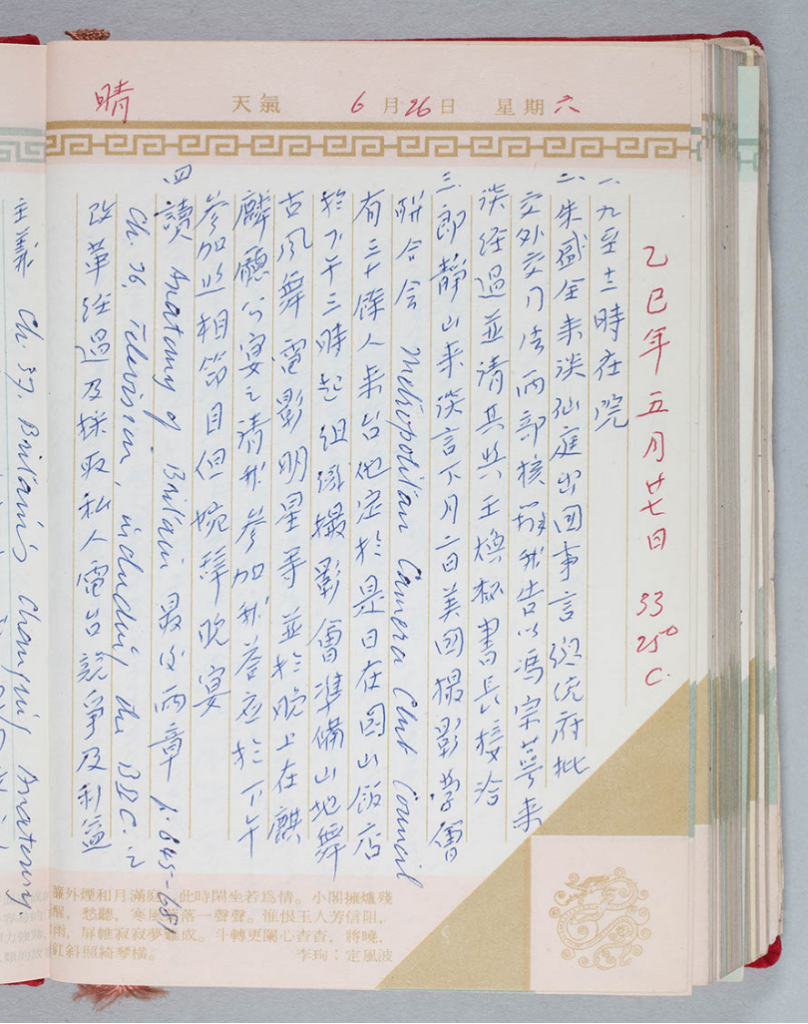 晴 天氣 6月26日 星期六
乙巳年五月廿七日 33 25° C.
一、九至十二時在院
二、朱盛荃來談仙庭出國事言總統府批
交外交司法兩部核辦我告以馮宗萼來
談經過並請其與王煥秘書長接洽
三、郎靜山來談言下月二日美國攝影學會
聯合會 Metropolitan Camera Club Council
有三十餘人來台他定於是日在圓山飯店
於下午三時起組織攝影會準備山地舞
古風舞電影明星等並於晚上在麒
麟廳公宴之請我參加我答應於下午
參加照相節目但婉辭晚宴
四 讀 Anatomy of Britain 最後兩章 p. 645-681
Ch. 36. Television, including the BBC. 之
改革經過及採取私人電台競爭及利益
主義 Ch. 37. Britain's Changing Anatomy
簾外煙和月滿庭。此時閑坐若爲情。小閣擁爐殘
醒,愁聽,寒風落一聲聲。惟恨玉人芳信阻,
雨,屏帷寂寂夢難成。斗轉更闌心杳杳,將曉,
紅斜照綺琴橫。 李珣:定風波